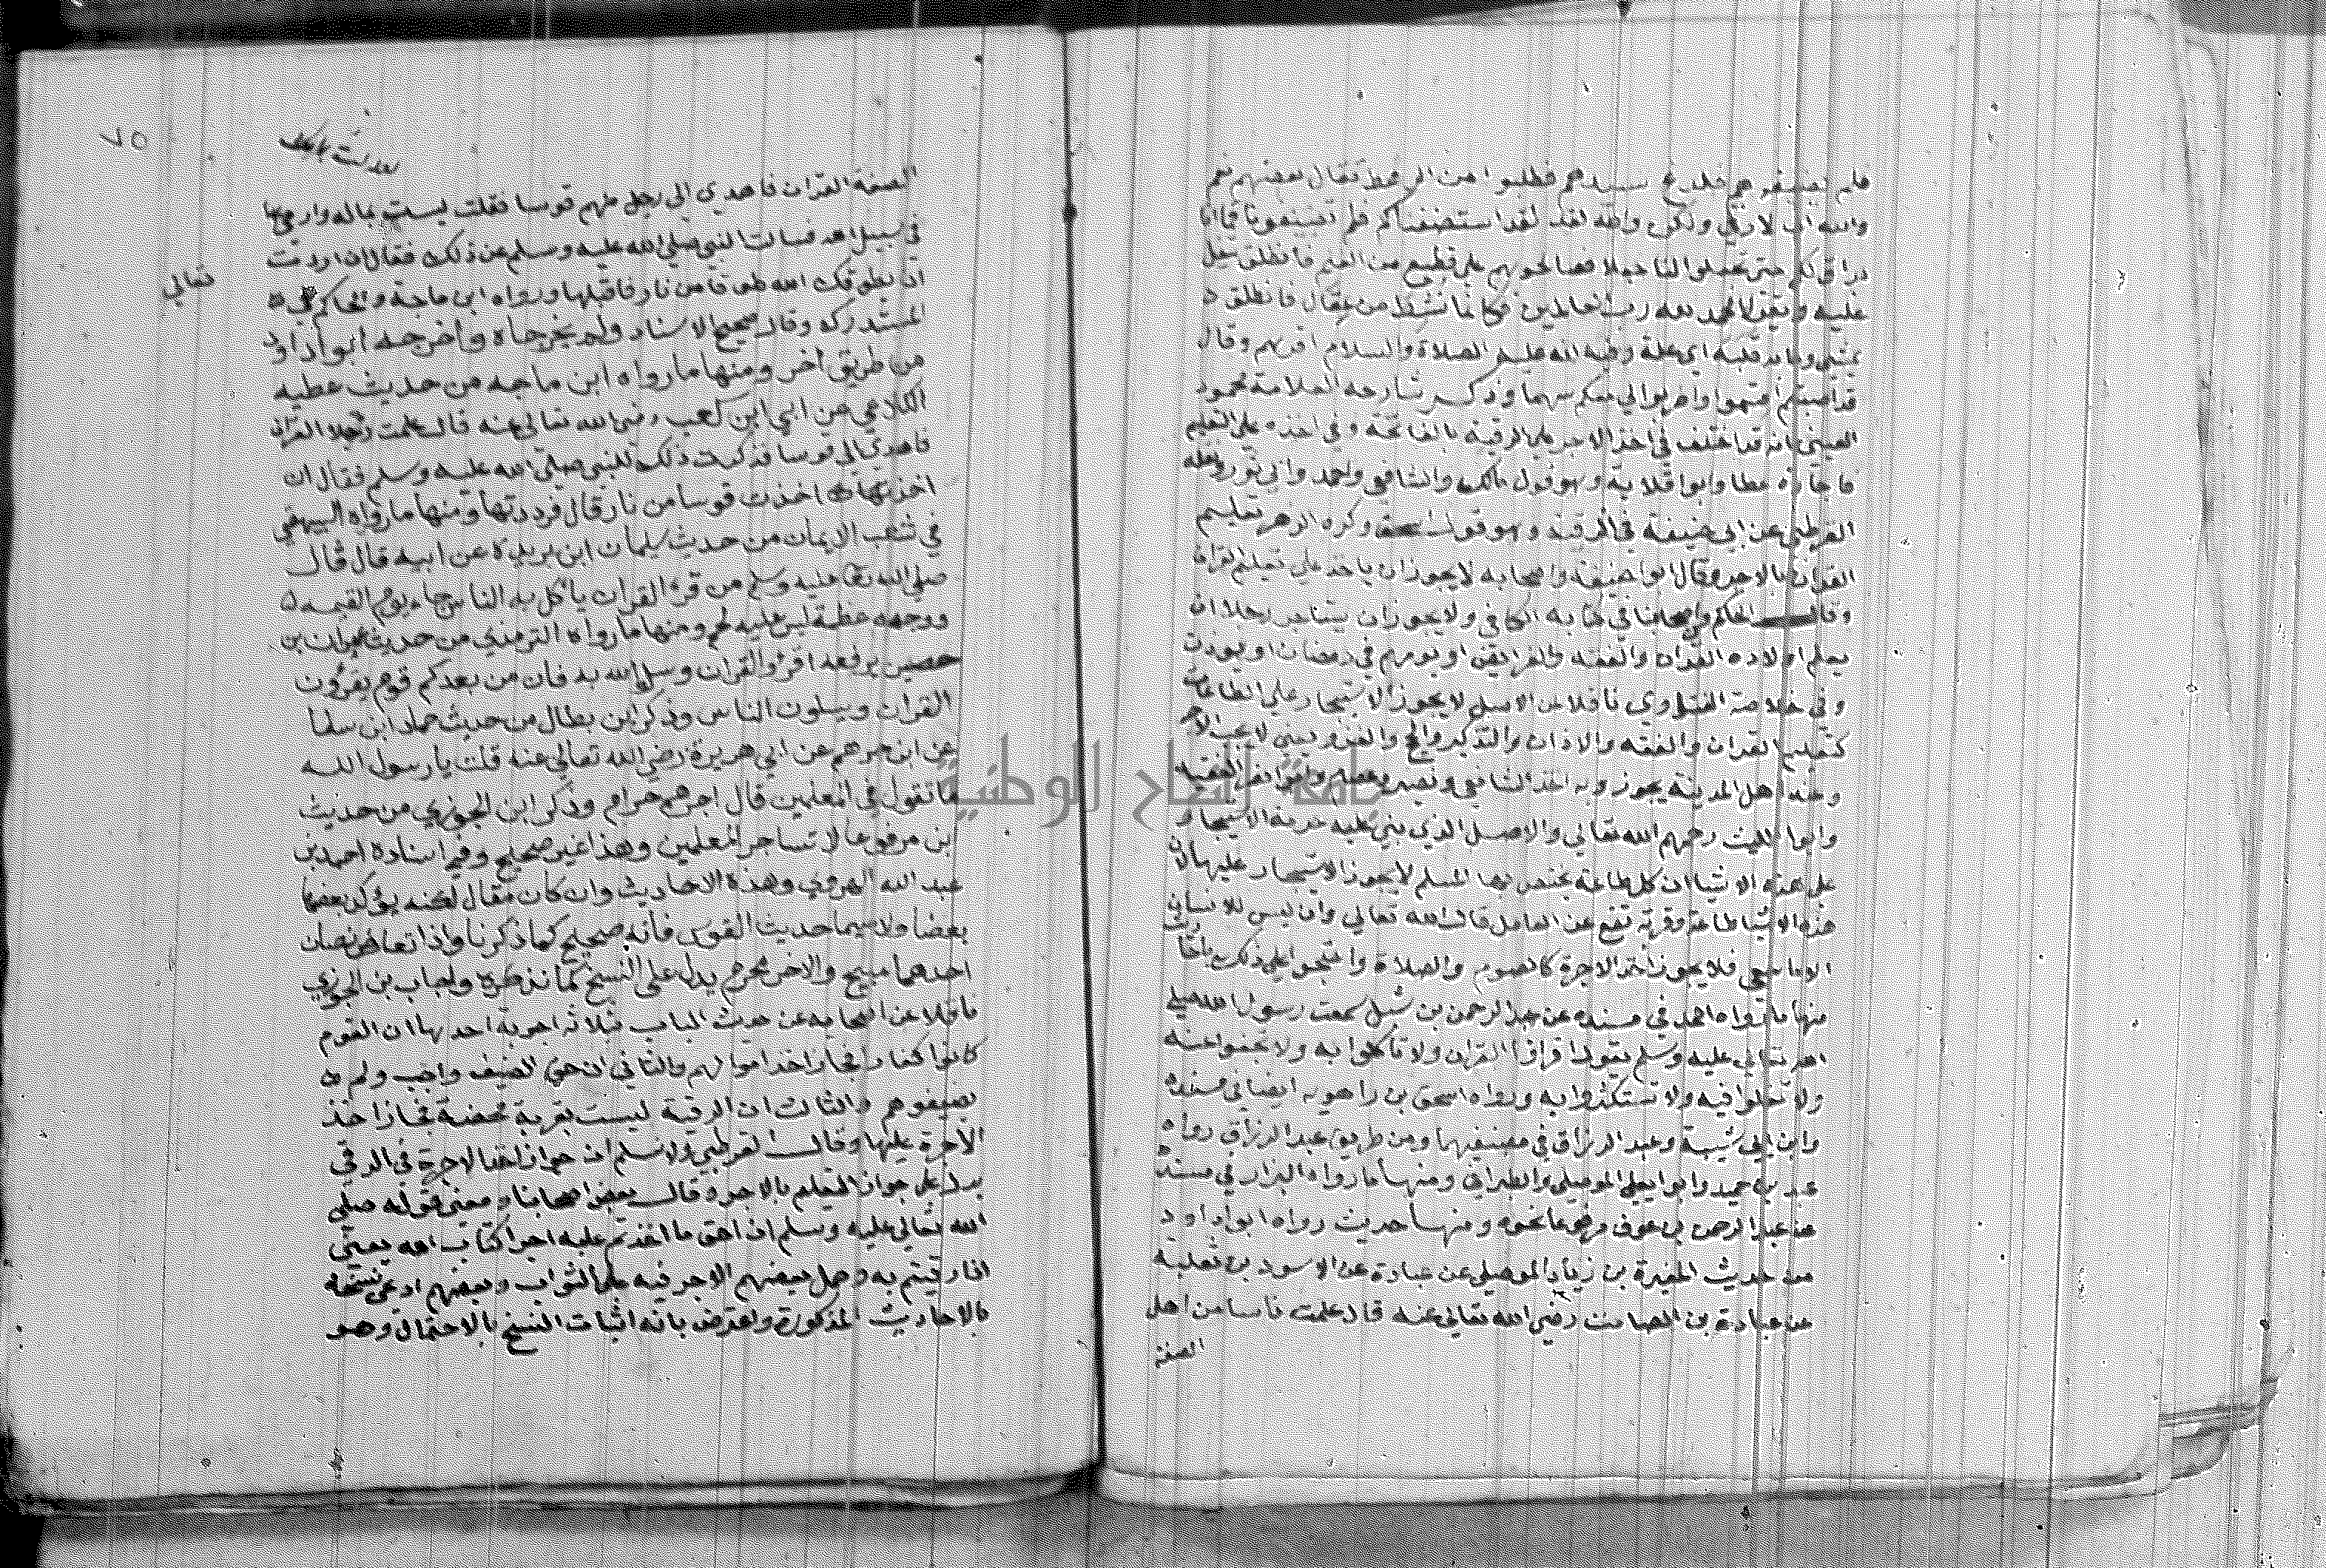 فلم يضيفوهم فلدغ سيدهم فطلبوا من الرهط فقال بعضهم نعم
والله اني لارقي ولكن والله لقد لقد استضفناكم فلم تضيفونا فما انا
براق لكم حتى تجعلوا لنا جعلا فصالحوهم على قطيع من الغنم فانطلق يتفل
عليه ويقرأ الحمد لله رب العالمين فكانما نشط من عقال فانطلق
يمشي وما به قلبة اي علة وفيه انه عليه الصلاة والسلام اقرهم وقال
قد اصبتم اقسموا واضربوا لي معكم سهما وذكر شارحه العلامة محمود
العيني انه قد اختلف في اخذ الاجر على الرقية بالفاتحة وفي اخذه على التعليم
فاجازه عطا وابوا قلابة وهو قول مالك والشافعي واحمد وابي ثور ونقله
القرطبي عن ابي حنيفة في الرقية وهو قول اسحق وكره الزهري تعليم
القران بالاجر وقال ابوا حنيفة واصحابه لا يجوز ان ياخذ على تعليم القران
وقال الحاكم واصحابنا في كتابه الكافي ولا يجوز ان يستاجر رجلا ان
يعلم اولاده القران والفقه والفرايض او يومهم في رمضان او يوذن
وفي خلاصة الفتاوي ناقلا عن الاصل لا يجوز الاستيجار على الطاعات
كتعليم القران والفقه والاذان والتذكير والحج والغزو يعني لا يجب الاجر
وعند اهل المدينة يجوز وبه اخذ الشافعي ونصير وعصام وابوا نصر الفقيه
وابوا الليث رحمهم الله تعالى والاصل الذي بني عليه حرمة الاستيجار
على هذه الاشيا ان كل طاعة يختص بها المسلم لا يجوز الاستيجار عليها لان
هذه الاشيا طاعة وقربة تقع عن العامل قال الله تعالى وان ليس للانسان
الا ما سعى فلا يجوز اخذ الاجرة كالصوم والصلاة واحتجوا على ذلك باحاديث
منها ما رواه احمد في مسنده عن عبد الرحمن بن شبل سمعت رسول الله صلى
الله تعالى عليه وسلم يقول اقراوا القران ولا تاكلوا به ولا تجفوا عنه
ولا تغلوا فيه ولا تستكثروا به ورواه اسحق بن راهويه ايضا في مسنده
وابن ابي شيبة وعبد الرزاق في مصنفيهما ومن طريق عبد الرزاق رواه
عبد بن حميد وابوا يعلى الموصلي والطبراني ومنها ما رواه البزار في مسنده
عن عبد الرحمن بن عوف مرفوعا نحوه ومنها حديث رواه ابوا داود
من حديث المغيرة بن زياد الموصلي عن عبادة عن الاسود بن ثعلبة
عن عبادة بن الصامت رضي الله تعالى عنه قال علمت ناسا من اهل
الصفة
٧٥
الصفة القران فاهدي الى رجل منهم قوسا فقلت ليست بمال وارمي بها
في سبيل الله فسالت النبي صلى الله عليه وسلم عن ذلك فقال ان اردت
تعالى
ان يطوقك الله طوقا من نار فاقبلها ورواه ابن ماجة والحاكم في
المستدرك وقال صحيح الاسناد ولم يخرجاه واخرجه ابوا داود
من طريق اخر ومنها ما رواه ابن ماجه من حديث عطيه
الكلاعي عن ابي ابن كعب رضي الله تعالى عنه قال علمت رجلا القران
فاهدي الي قوسا فذكرت ذلك للنبي صلى الله عليه وسلم فقال ان
اخذتها اخذت قوسا من نار قال فرددتها ومنها ما رواه البيهقي
في شعب الايمان من حديث سليمان ابن بريدة عن ابيه قال قال
صلى الله تعالى عليه وسلم من قرء القران ياكل به الناس جاء يوم القيمه
ووجهه عظمة ليس عليه لحم ومنها ما رواه الترمذي من حديث عمران بن
حصين يرفعه اقرؤ القران وسلوا الله به فان من بعدكم قوم يقرؤن
القران ويسلون الناس وذكر ابن بطال من حديث حماد ابن سلما
عن ابن جرهم عن ابي هريرة رضي الله تعالى عنه قلت يا رسول الله
ما تقول في المعلمين قال اجرهم حرام وذكر ابن الجوزي من حديث
ابن مرفوعا لا تستاجر المعلمين وهذا غير صحيح وفي اسناده احمد بن
عبد الله الهروي وهذه الاحاديث وان كان مقال لكنه يؤكد بعضها
بعضا ولا سيما حديث القوس فانه صحيح كما ذكرنا واذا تعارض نصان
احدهما مبيح والاخر محرم يدل على النسخ كما نذكره واجاب بن الجوزي
ناقلا عن اصحابه عن حديث الباب بثلاثة اجوبة احدها ان القوم
كانوا كفارا فجاز اخذ اموالهم والثاني ان حق الضيف واجب ولم
يضيفوهم والثالث ان الرقية ليست بقربة محضة فجاز اخذ
الاجرة عليها وقال القرطبي ولا نسلم ان جواز اخذ الاجرة في الرقي
يدل على جواز التعليم بالاجر وقال بعض اصحابنا ومعنى قوله صلى
الله تعالى عليه وسلم ان احق ما اخذتم عليه اجرا كتاب الله يعني
اذا رقيتم به وحمل بعضهم الاجر فيه على الثواب وبعضهم ادعى نسخه
بالاحاديث المذكورة واعترض بانه اثبات النسخ بالاحتمال وهو
جامعة النجاح الوطنية